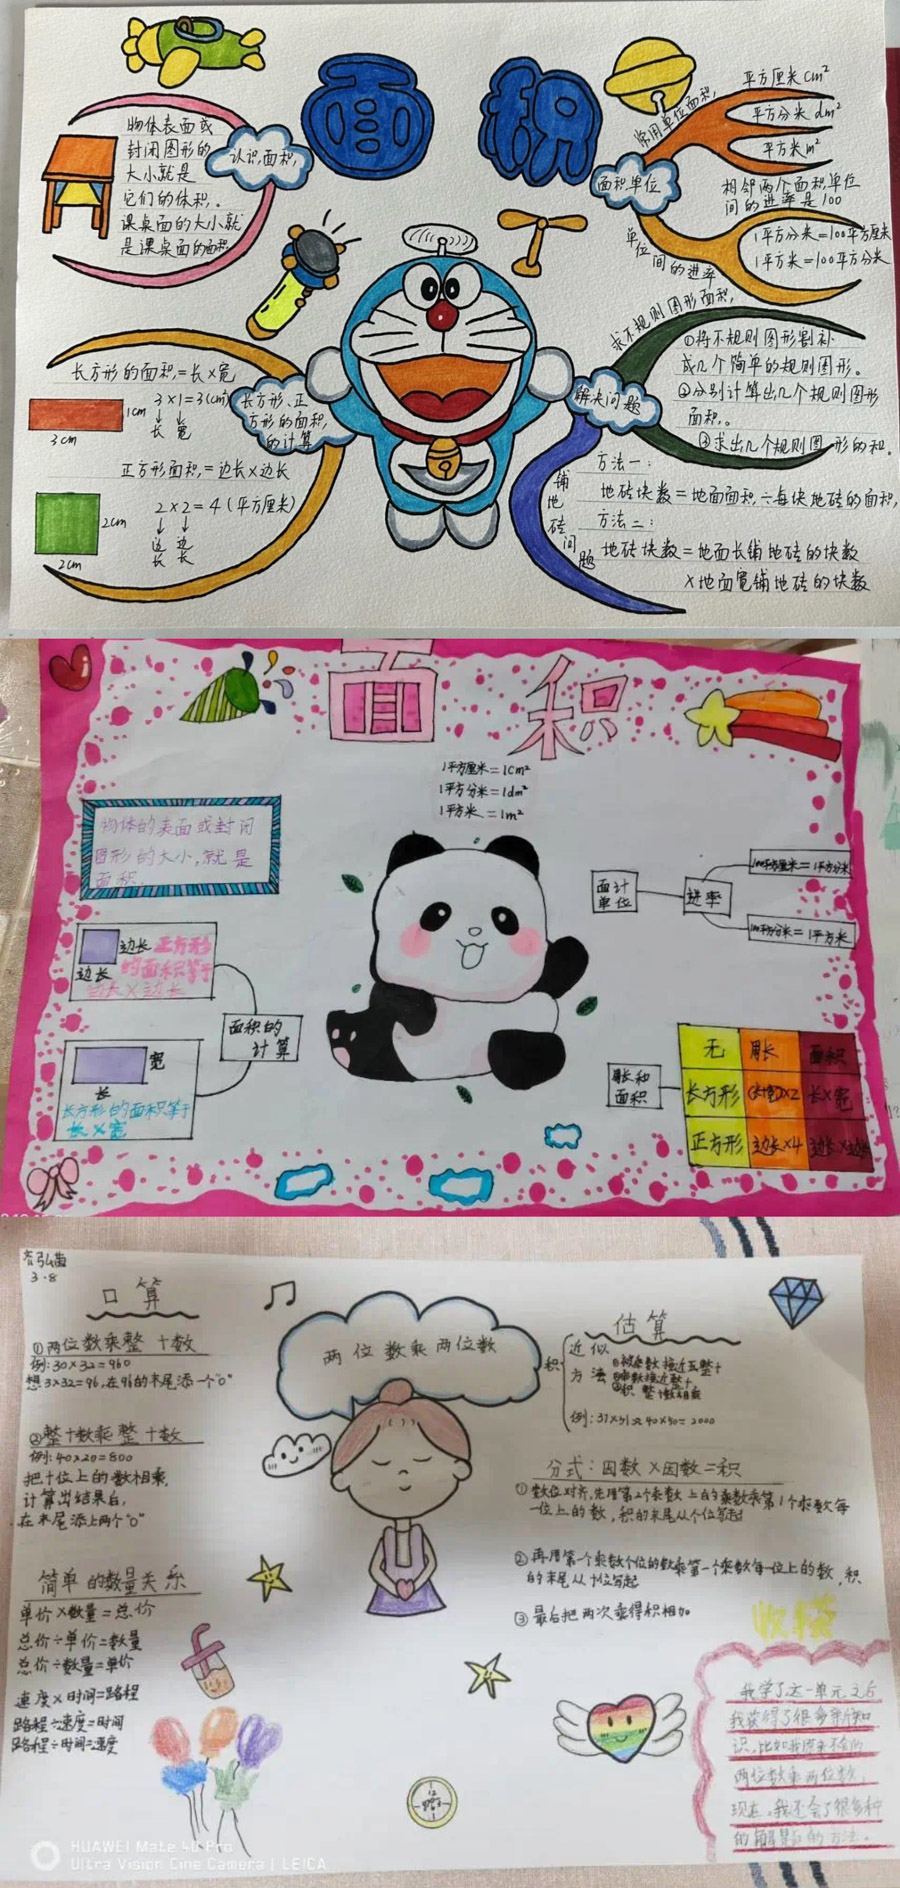 面积
认识面积
物体表面或
封闭图形的
大小就是
它们的体积。
课桌面的大小就
是课桌面的面积
常用单位面积
平方厘米cm²
平方分米dm²
平方米m²
面积单位
相邻两个面积单位
间的进率是100
单位间的进率
1平方分米=100平方厘米
1平方米=100平方分米
长方形、正
方形的面积
的计算
长方形的面积=长×宽
3×1=3(cm)
长 宽
1cm
3cm
正方形面积=边长×边长
2×2=4(平方厘米)
边长 边长
2cm
2cm
求不规则图形面积
解决问题
①将不规则图形割补
或几个简单的规则图形。
②分别计算出几个规则图形
面积。
③求出几个规则图形的积。
铺地砖问题
方法一:
地砖块数=地面面积÷每块地砖的面积
方法二:
地砖块数=地面长铺地砖的块数
×地面宽铺地砖的块数
面积
1平方厘米=1cm²
1平方分米=1dm²
1平方米=1m²
物体的表面或封闭
图形的大小,就是
面积.
边长
边长
正方形
的面积等于
边长×边长
面积的
计算
宽
长
长方形的面积等于
长×宽
面计
单位
进率
100平方厘米=1平方分米
100平方分米=1平方米
周长和
面积
无 周长 面积
长方形 (长+宽)×2 长×宽
正方形 边长×4 边长×边长
3.8
口算
①两位数乘整十数
例:30×32=960
想3×32=96,在96的末尾添一个"0"
②整十数乘整十数
例:40×20=800
把十位上的数相乘,
计算出结果后,
在末尾添上两个"0"
简单的数量关系
单价×数量=总价
总价÷单价=数量
总价÷数量=单价
速度×时间=路程
路程÷速度=时间
路程÷时间=速度
两位数乘两位数
估算
近似
积
方法
分式:因数×因数=积
①数位对齐,先用第2个乘数上的乘数乘第1个乘数每
一位上的数,积的末尾从个位写起
②再用第一个乘数个位的数乘第一个乘数每一位上的数,积
的末尾从十位写起
③最后把两次乘得积相加
收获
我学了这一单元之后
我获得了很多新知
识,比如我原来不会的
两位数乘两位数,
现在,我还会了很多种
的解题的方法。
HUAWEI Mate 40 Pro
Ultra Vision Cine Camera | LEICA